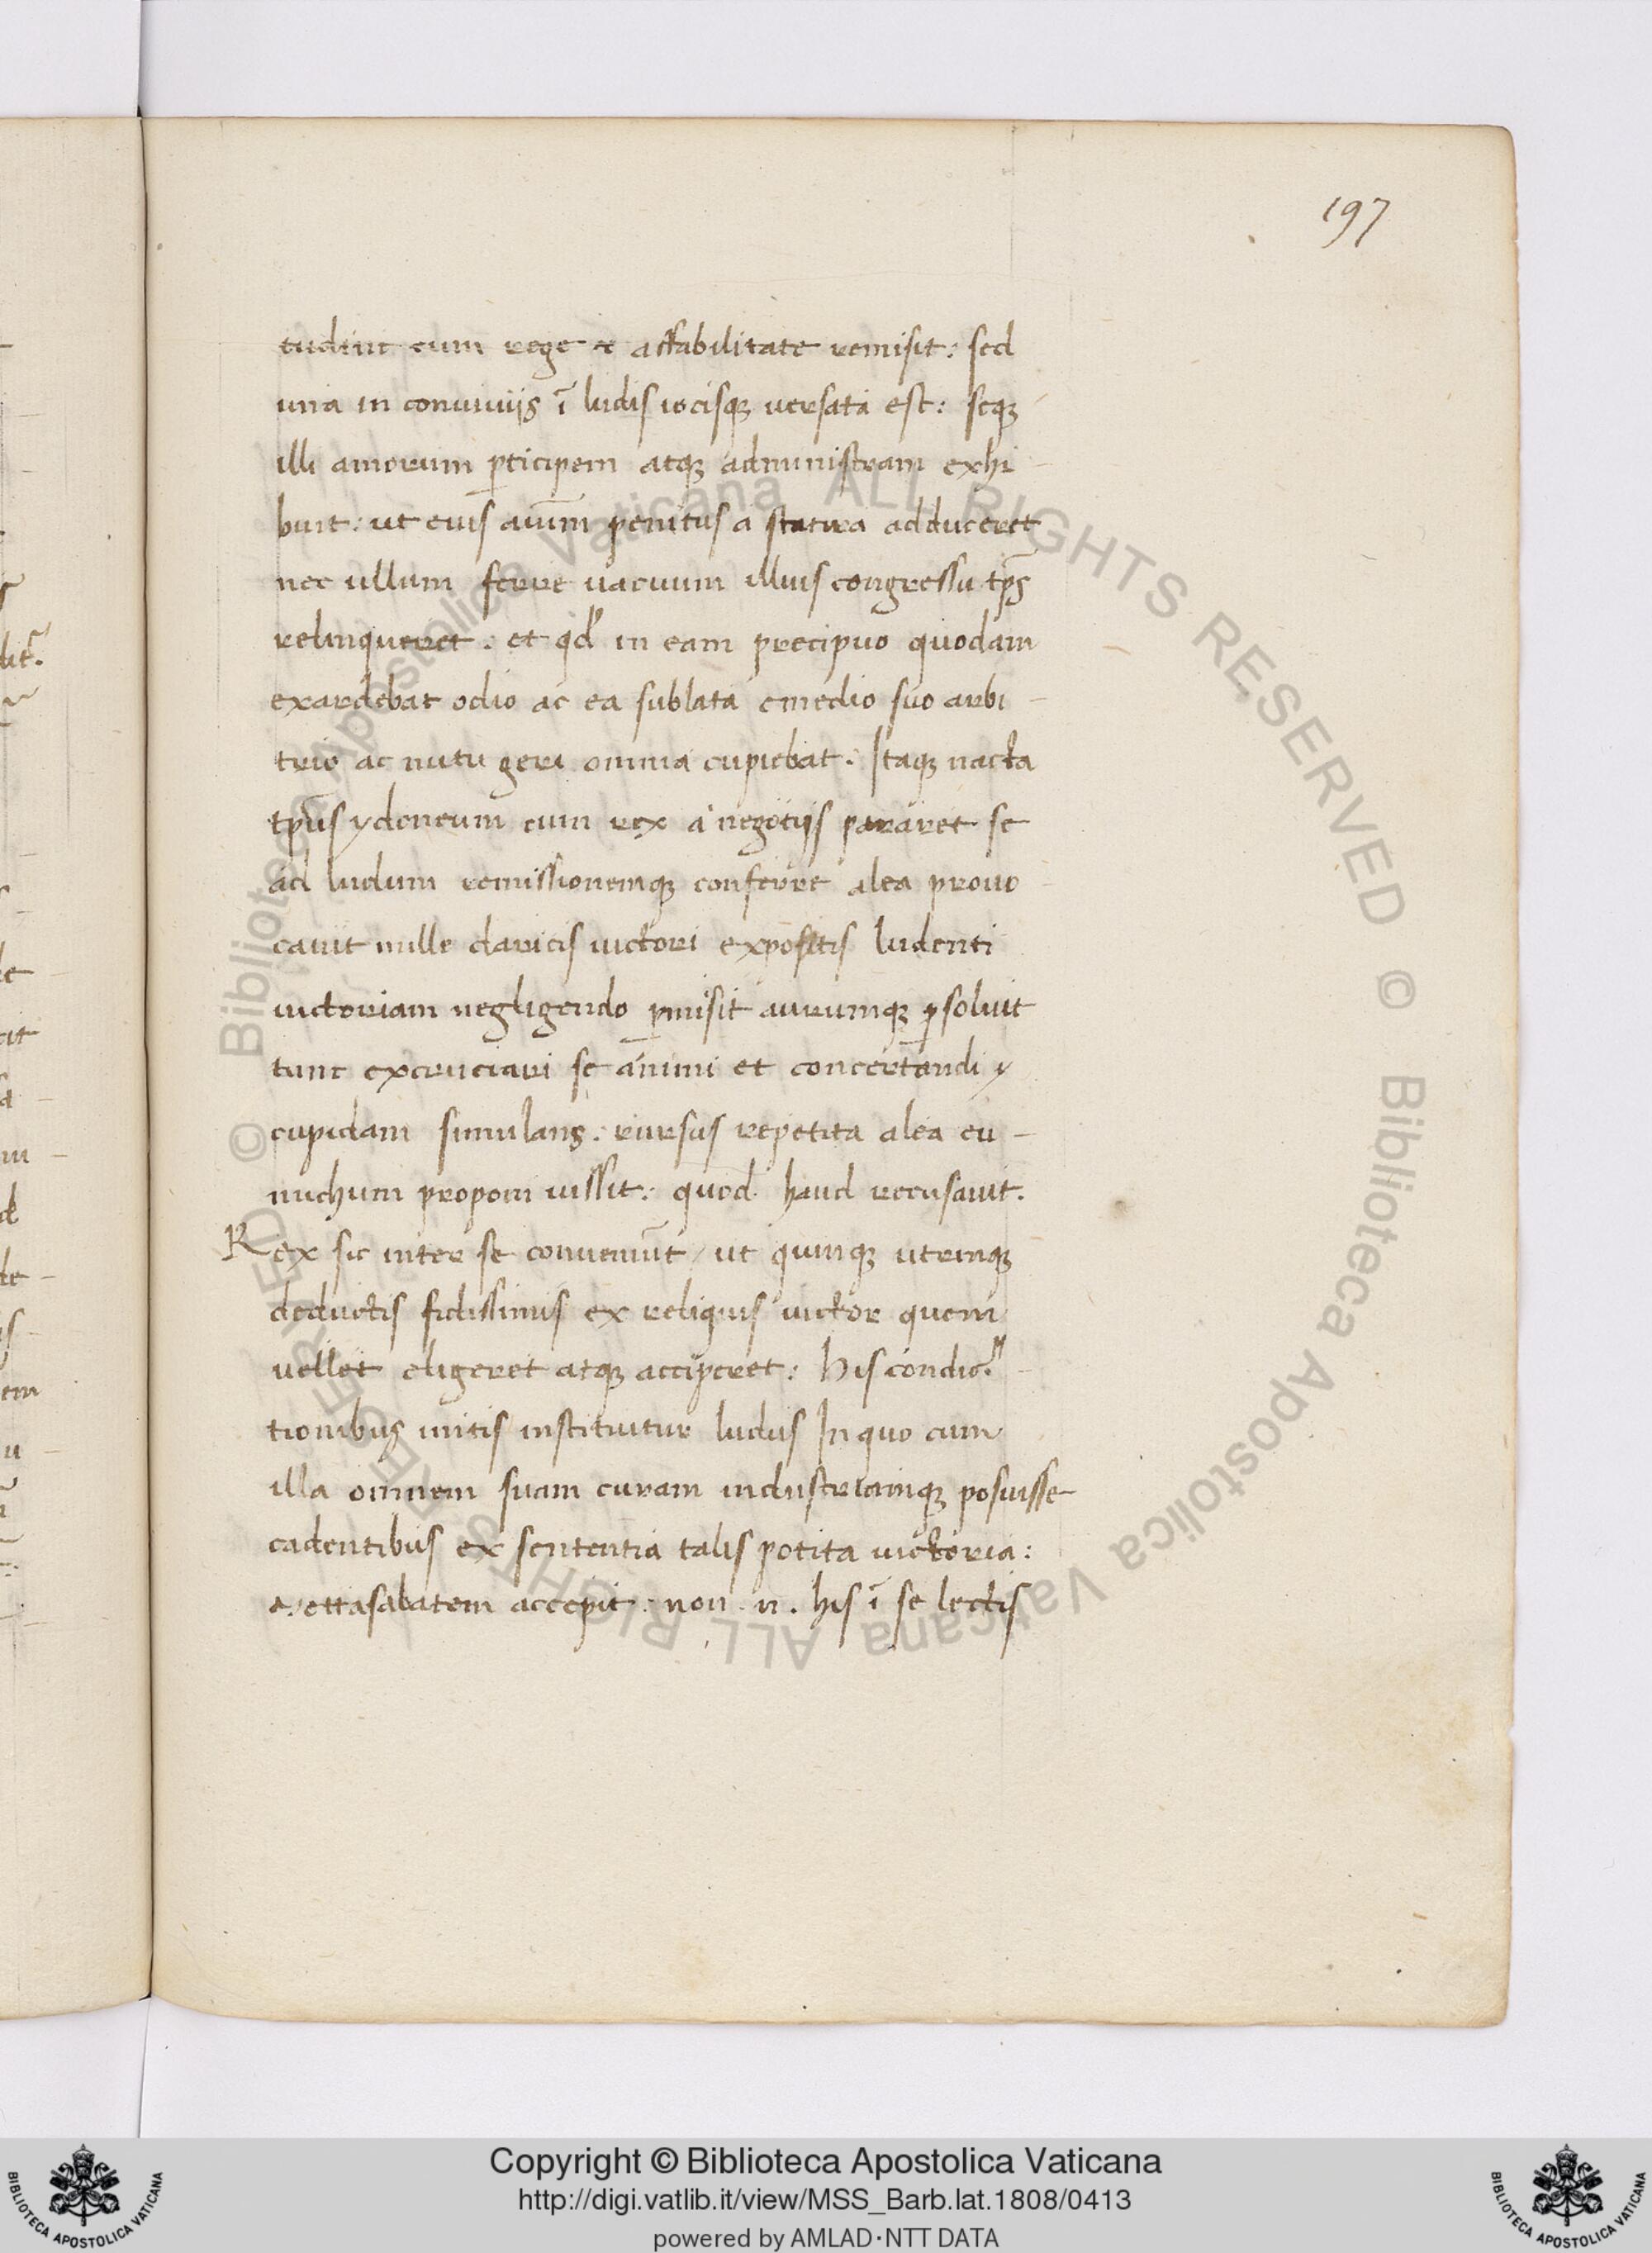 197
tudine cum rege & affabilitate remisit: sed
una in conuiuijs ī ludis iocisqꝫ uersata est: seqꝫ
illi amorum ꝑticipem atqꝫ administram exhi
buit: ut eius aīum penitus a statira adduceret
nec ullum ferre uacuum illius congressu tp̄s
relinqueret: et qd' in eam precipuo quodam
exardebat odio ac ea sublata emedio suo arbi-
trio ac nutu geri omnia cupiebat: Itaqꝫ nacta
tp̄us ydoneum cum rex a negotijs pararet se
ad ludum remissionemqꝫ conferre alea prouo
cauit mille daricis uictori expositis ludenti
uictoriam negligendo ꝑmisit aurumqꝫ ꝑsoluit
tunc excruciari se animi et concertandi
cupidam simulans: rursus repetita alea eu-
nuchum proponi iussit: quod haud recusauit.
Rex sic inter se conueniūt / ut quinqꝫ utrinqꝫ
deductis fidissimis ex reliquis uictor quem
vellet eligeret atqꝫ acciperet: His condic
tionibus initis instituitur ludus In quo cum
illa omnem suam curam industriamqꝫ posuisse
cadentibus ex sententia talis potita uictoria:
accepit: non .n. his ī se lectis
© Biblioteca Apostolica Vaticana ALL RIGHTS RESERVED © Biblioteca Apostolica Vaticana ALL RIGHTS RESERVED
Copyright © Biblioteca Apostolica Vaticana
http://digi.vatlib.it/view/MSS_Barb.lat.1808/0413
powered by AMLAD·NTT DATA
BIBLIOTECA APOSTOLICA VATICANA
BIBLIOTECA APOSTOLICA VATICANA